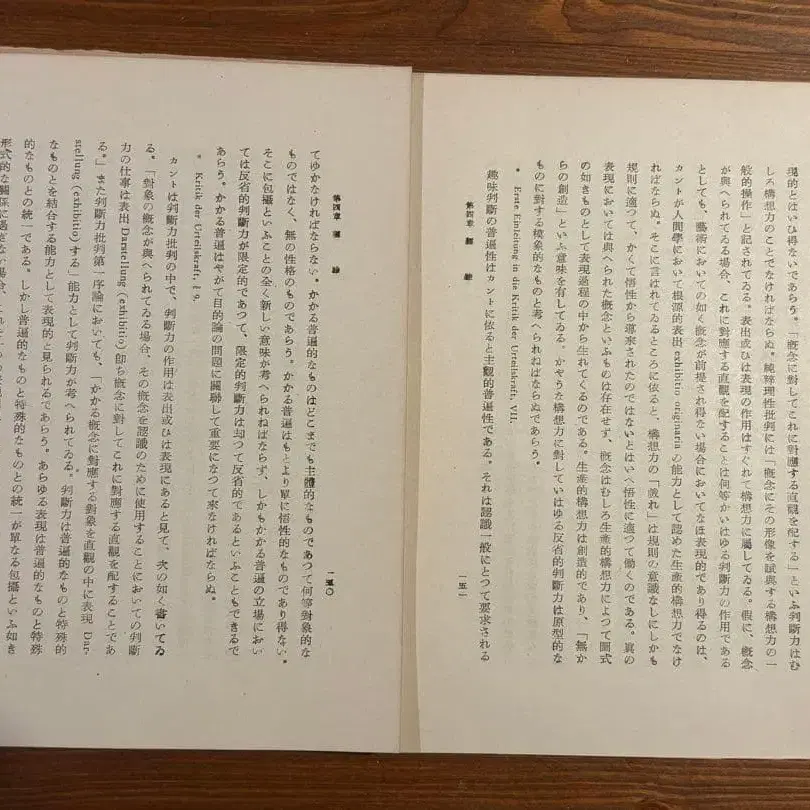 第四章 經驗 一五〇
てゆかなければならない。かかる普遍的なものはどこまでも主體的なものであつて何等對象的な
ものではなく、無の性格のものであらう。かかる普遍はもとより單に悟性的なものであり得ない。
そこに包攝といふことの全く新しい意味が考へられねばならず、しかもかかる普遍の立場におい
ては反省的判斷力が限定的であつて、限定的判斷力は却つて反省的であるといふこともできるで
あらう。かかる普遍はやがて目的論の問題に關聯して重要になつて來なければならぬ。
* Kritik der Urteilskraft, § 9.
カントは判斷力批判の中で、判斷力の作用は表出或ひは表現にあると見て、次の如く書いてゐ
る。「對象の概念が與へられてゐる場合、その概念を認識のために使用することにおいての判斷
力の仕事は表出 Darstellung (exhibitio) 卽ち概念に對してこれに對應する直觀を配することであ
る。」また判斷力批判第一序論においても、「かかる概念に對應する對象を直觀の中に表現 Dar-
stellung (exhibitio) する」能力として判斷力が考へられてゐる。判斷力は普遍的なものと特殊的
なものとを結合する能力として表現的と見られるであらう。あらゆる表現は普遍的なものと特殊
的なものとの統一である。しかし普遍的なものと特殊的なものとの統一が單なる包攝といふ如き
形式的な關係に過ぎない場合、
現的とはいひ得ないであらう。「概念に對してこれに對應する直觀を配する」といふ判斷力はむ
しろ構想力のことでなければならぬ。純粹理性批判には「概念にその形像を賦與する構想力の一
般的操作」と記されてゐる。表出或ひは表現の作用はすぐれて構想力に屬してゐる。假に、概念
が與へられてゐる場合、これに對應する直觀を配することは何等かいはゆる判斷力の作用である
としても、藝術においての如く概念が前提され得ない場合においてなほ表現的であり得るのは、
カントが人間學において根源的表出 exhibitio originaria の能力として認めた生產的構想力でなけ
ればならぬ。そこに言はれてゐるところに依ると、構想力の「戲れ」は規則の意識なしにしかも
規則に適つて、かくて悟性から導來されたのではないとはいへ悟性に適つて働くのである。眞の
表現においては與へられた概念といふものは存在せず、概念はむしろ生產的構想力によつて圖式
の如きものとして表現過程の中から生れてくるのである。生產的構想力は創造的であり、「無か
らの創造」といふ意味を有してゐる。かやうな構想力に對していはゆる反省的判斷力は原型的な
ものに對する模象的なものと考へられねばならぬであらう。
* Erste Einleitung in die Kritik der Urteilskraft, VII.
趣味判斷の普遍性はカントに依ると主觀的普遍性である。それは認識一般にとつて要求される
第四章 經驗 一五一